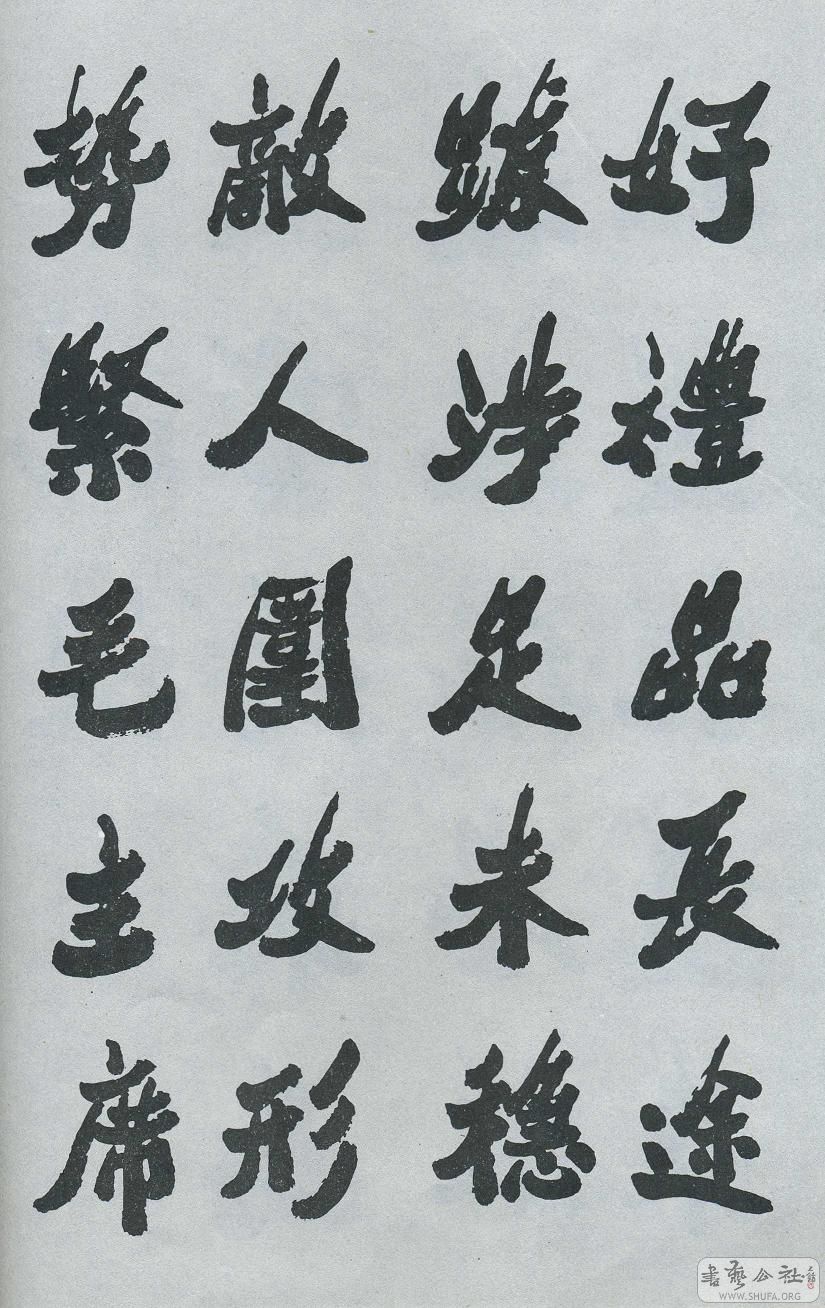 好禮品長途
跋涉足未穩
敵人圍攻形
势緊毛主席
書藝公社
WWW.SHUFA.ORG